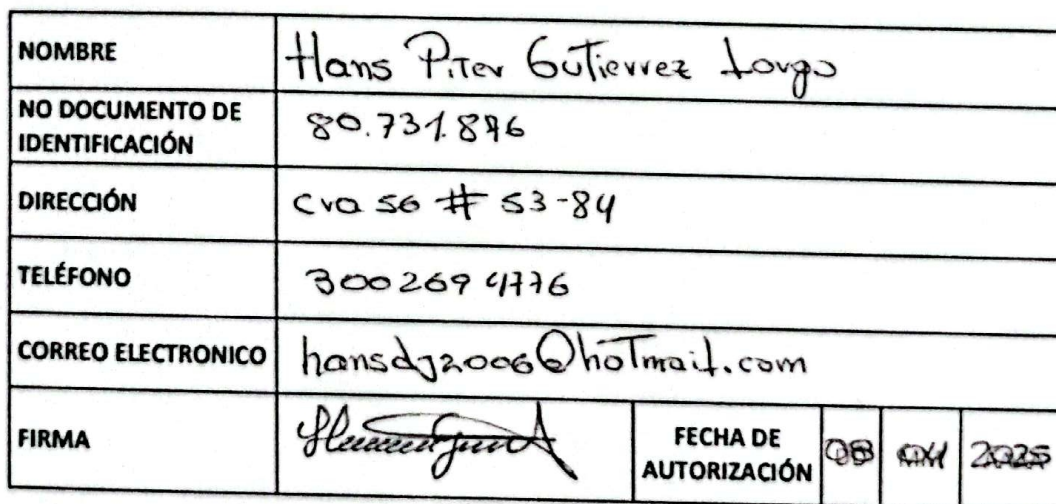 NOMBRE Hans Piter Gutierrez Largo
NO DOCUMENTO DE
IDENTIFICACIÓN 80.731.876
DIRECCIÓN cra 56 # 53-84
TELÉFONO 300 269 4776
CORREO ELECTRONICO hansdj2006@hotmail.com
FIRMA FECHA DE
AUTORIZACIÓN 08 04 2025